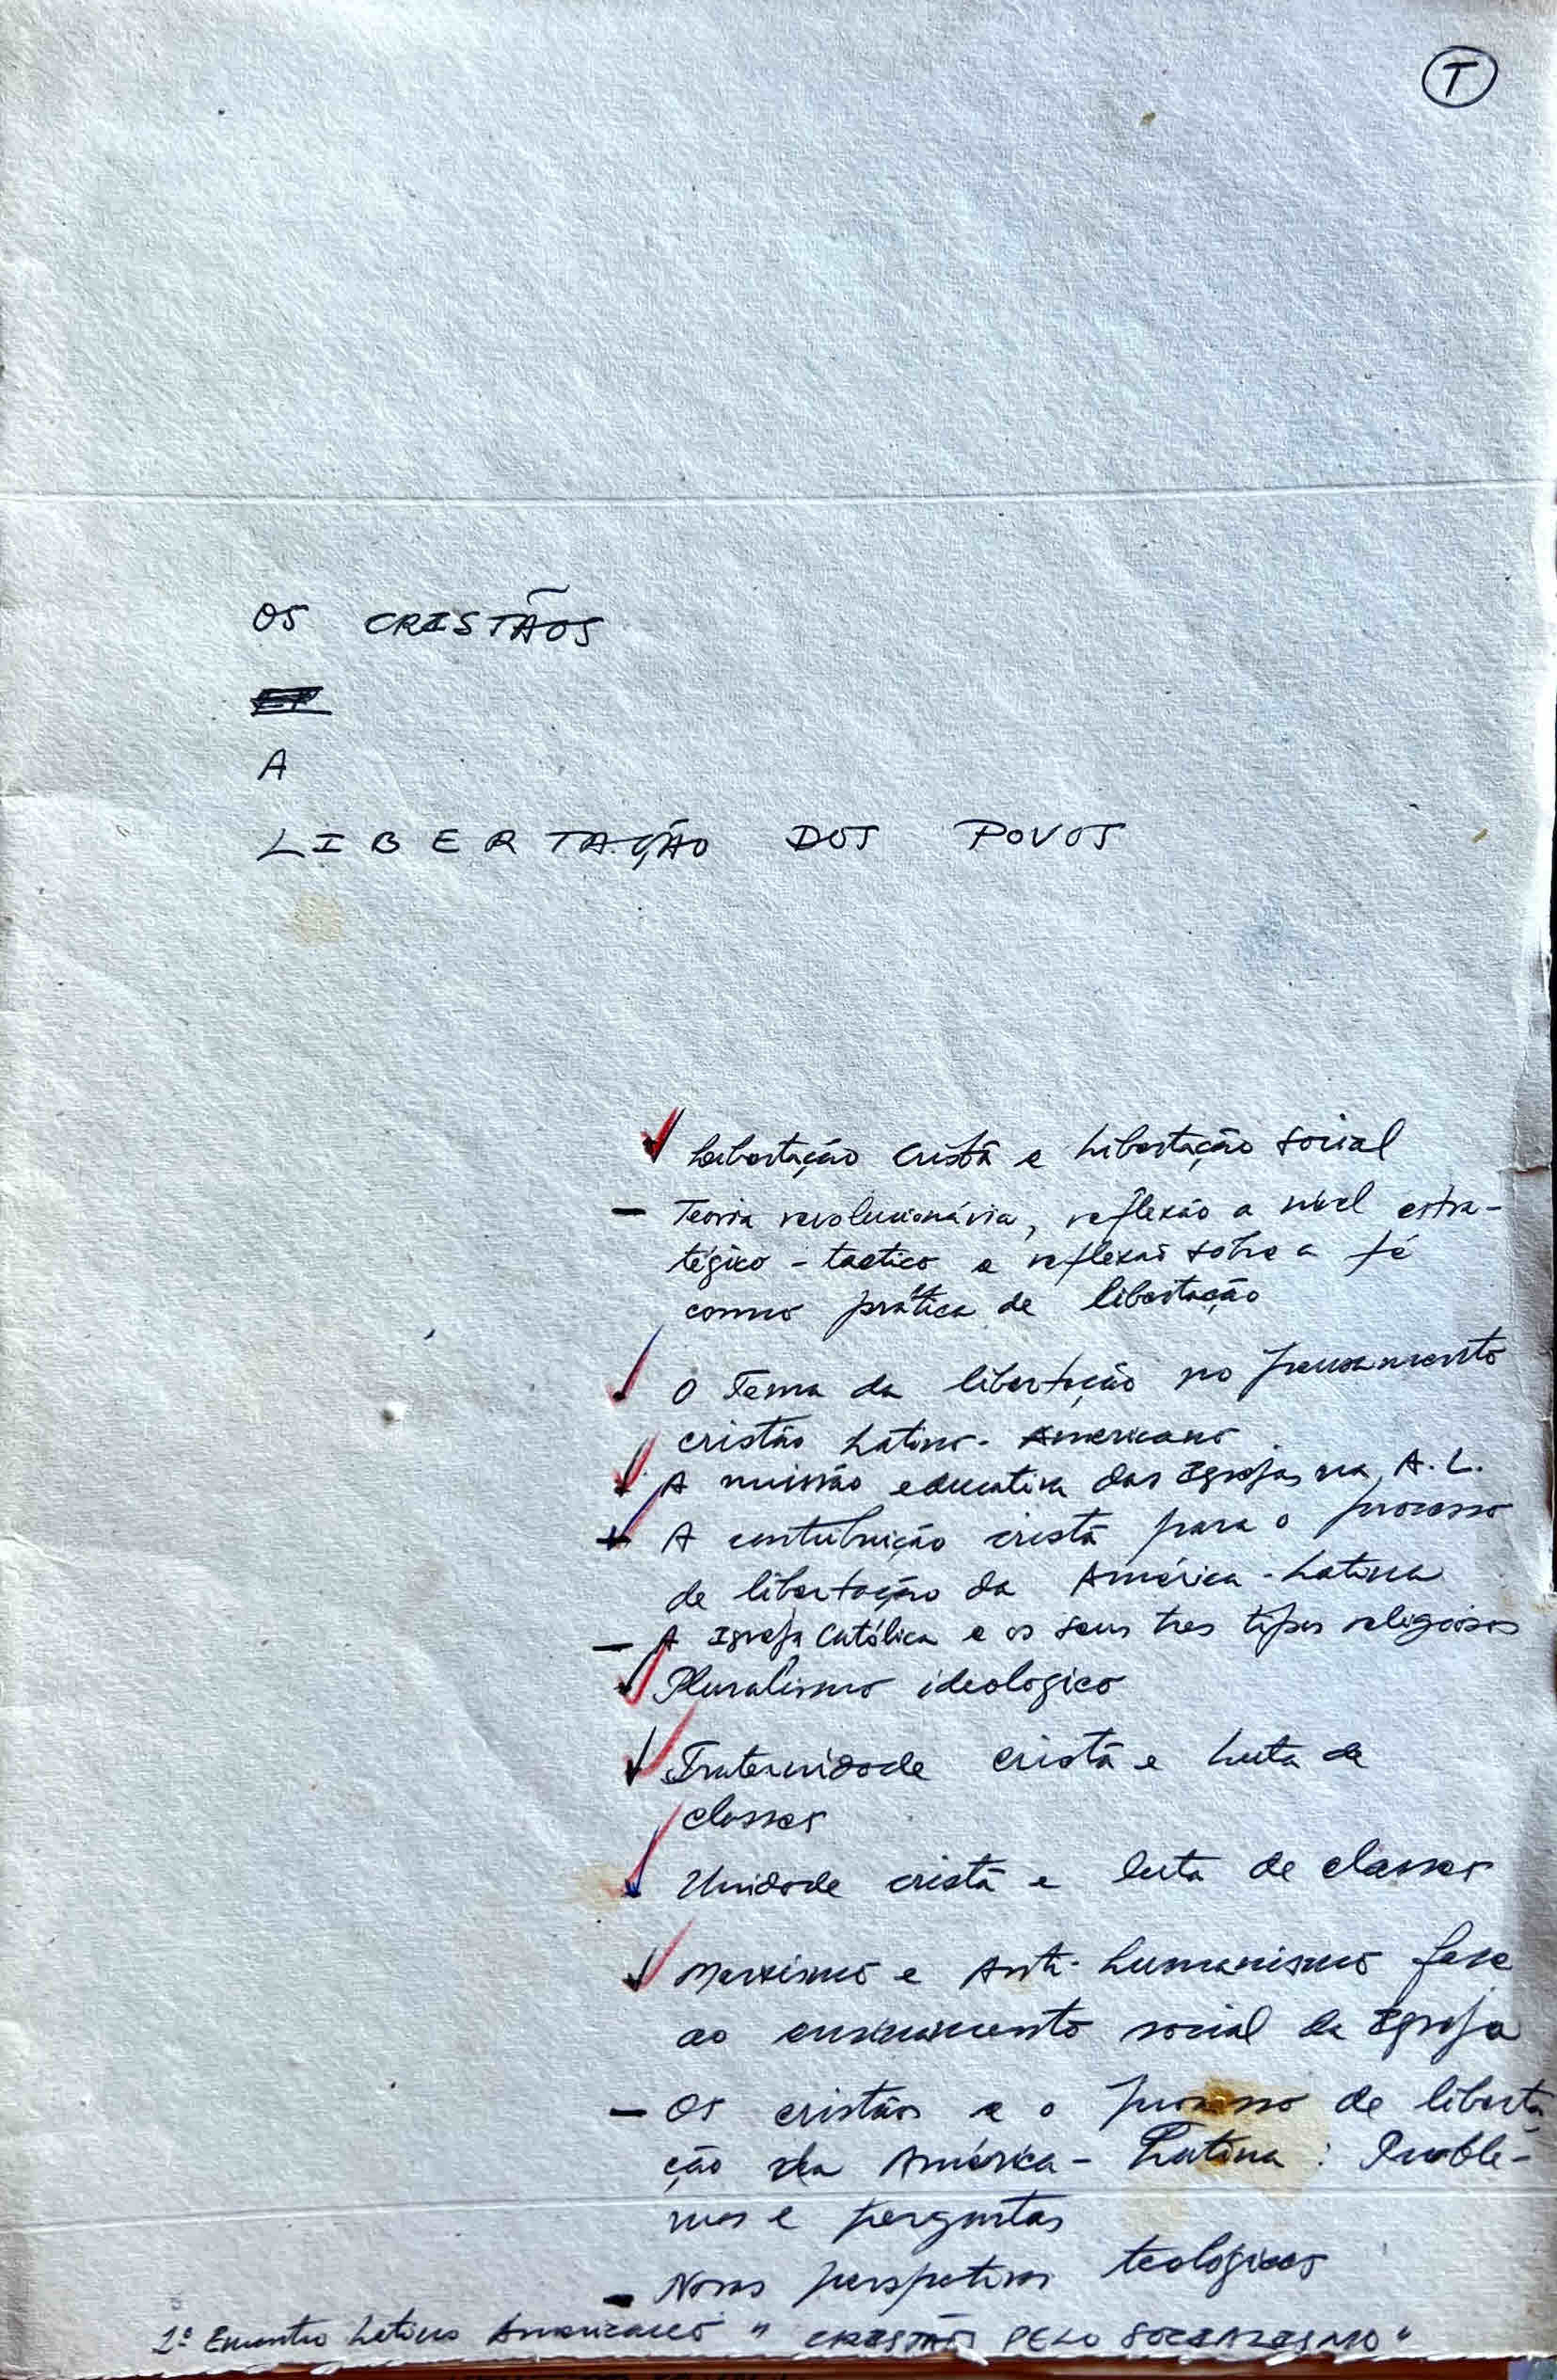 T
OS CRISTÃOS
A
LIBERTAÇÃO DOS POVOS
Libertação Cristã e Libertação Social
Teoria revolucionária, reflexão a nível estra-
tégico - tactico e reflexão sobre a fé
como prática de libertação
O Tema da libertação no pensamento
cristão Latino-Americano
A missão educativa das Igrejas na A.L.
A contribuição cristã para o processo
de libertação da América-Latina
A Igreja Católica e os seus tres tipos religiosos
Pluralismo ideologico
Fraternidade cristã e Luta de
classes
Unidade cristã e luta de classes
Marxismo e Anti-humanismo face
ao ensinamento social da Igreja
- Os cristãos e o processo de liberta
ção da América-Latina: Proble-
mas e perguntas
- Novas perspetivas teologicas
1º Encontro Latino Americano " CRISTÃOS PELO SOCIALISMO "